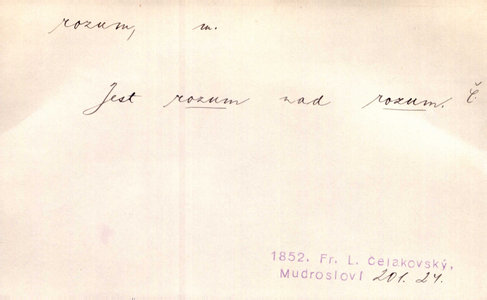 rozum, m.
Jest rozum nad rozum. Č.
1852. Fr. L. Čelakovský,
Mudrosloví 201. 24.